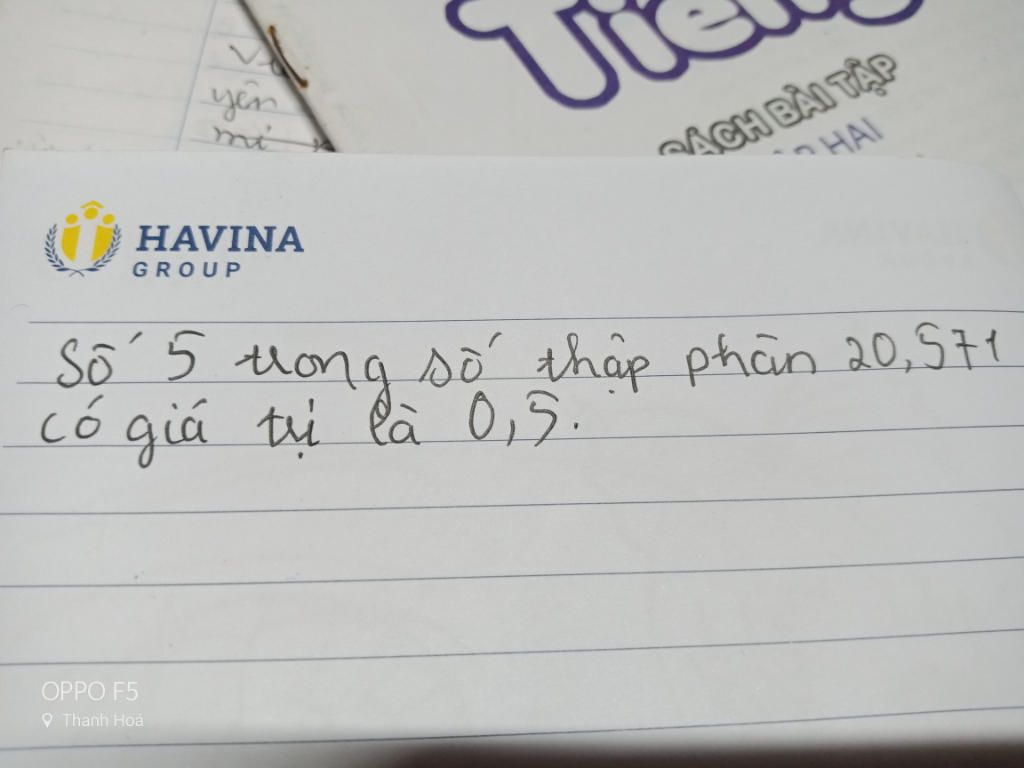 Tiếng
SÁCH BÀI TẬP
HAI
yên
HAVINA
GROUP
Số 5 trong số thập phân 20,571
có giá trị là 0,5.
OPPO F5
Thanh Hoá